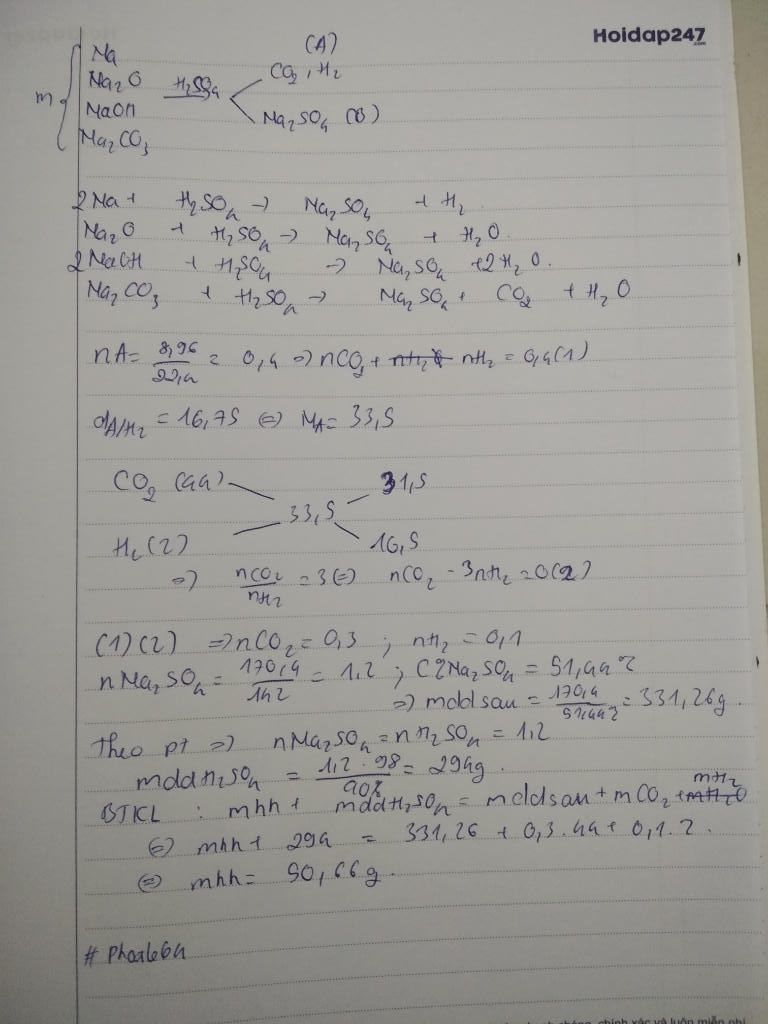 Hoidap247
.com
(A)
Na
Na₂O H₂SO₄ CO₂, H₂
m NaOH Na₂SO₄ (B)
Na₂CO₃
2Na + H₂SO₄ → Na₂SO₄ + H₂
Na₂O + H₂SO₄ → Na₂SO₄ + H₂O.
2NaOH + H₂SO₄ → Na₂SO₄ + 2H₂O.
Na₂CO₃ + H₂SO₄ → Na₂SO₄ + CO₂ + H₂O
nA = 8,96/22,4 = 0,4 => nCO₂ + nH₂ = 0,4 (1)
dA/H₂ = 16,75 <=> MA = 33,5
CO₂ (44) 31,5
33,5
H₂ (2) 10,5
=> nCO₂/nH₂ = 3 <=> nCO₂ - 3nH₂ = 0 (2)
(1)(2) => nCO₂ = 0,3 ; nH₂ = 0,1
nNa₂SO₄ = 170,4/142 = 1,2 ; C%Na₂SO₄ = 51,44%
=> mddsau = 170,4/51,44% = 331,26g.
Theo pt => nNa₂SO₄ = nH₂SO₄ = 1,2
mddH₂SO₄ = 1,2.98/40% = 294g.
BTKL : mhh + mddH₂SO₄ = mddsau + mCO₂ + mH₂
<=> mhh + 294 = 331,26 + 0,3.44 + 0,1.2.
<=> mhh = 50,66g.